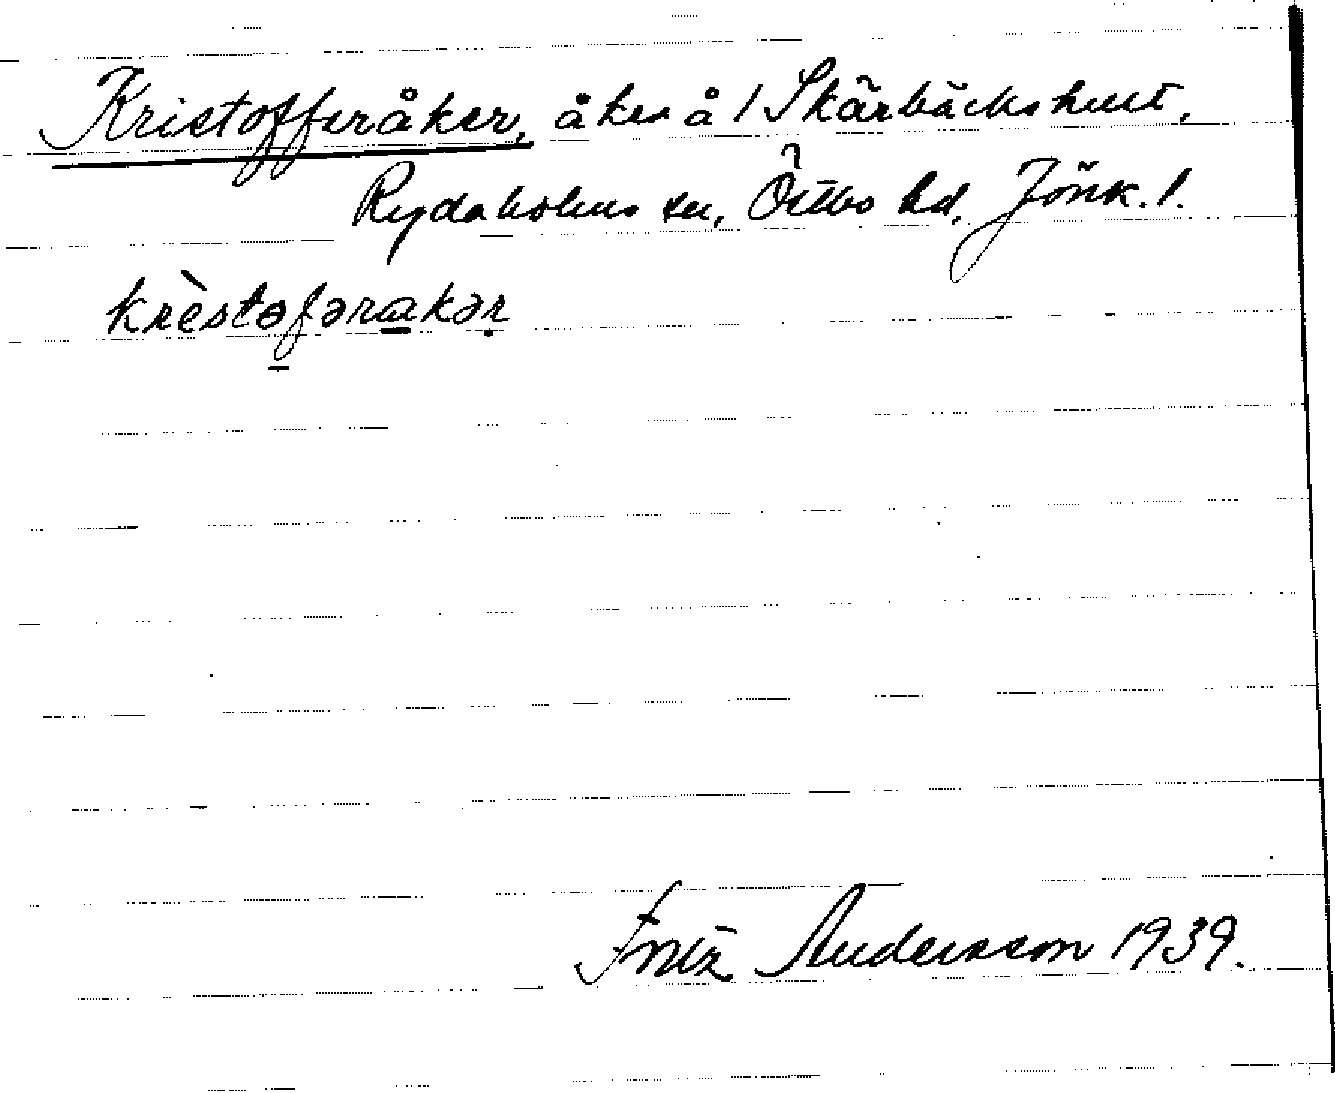 Kristofferåker, åker å 1 Skärbäckshult,
Rydaholms sn, Östbo hd, Jönk. l.
krèstofərakər
Fritz Andersson 1939.